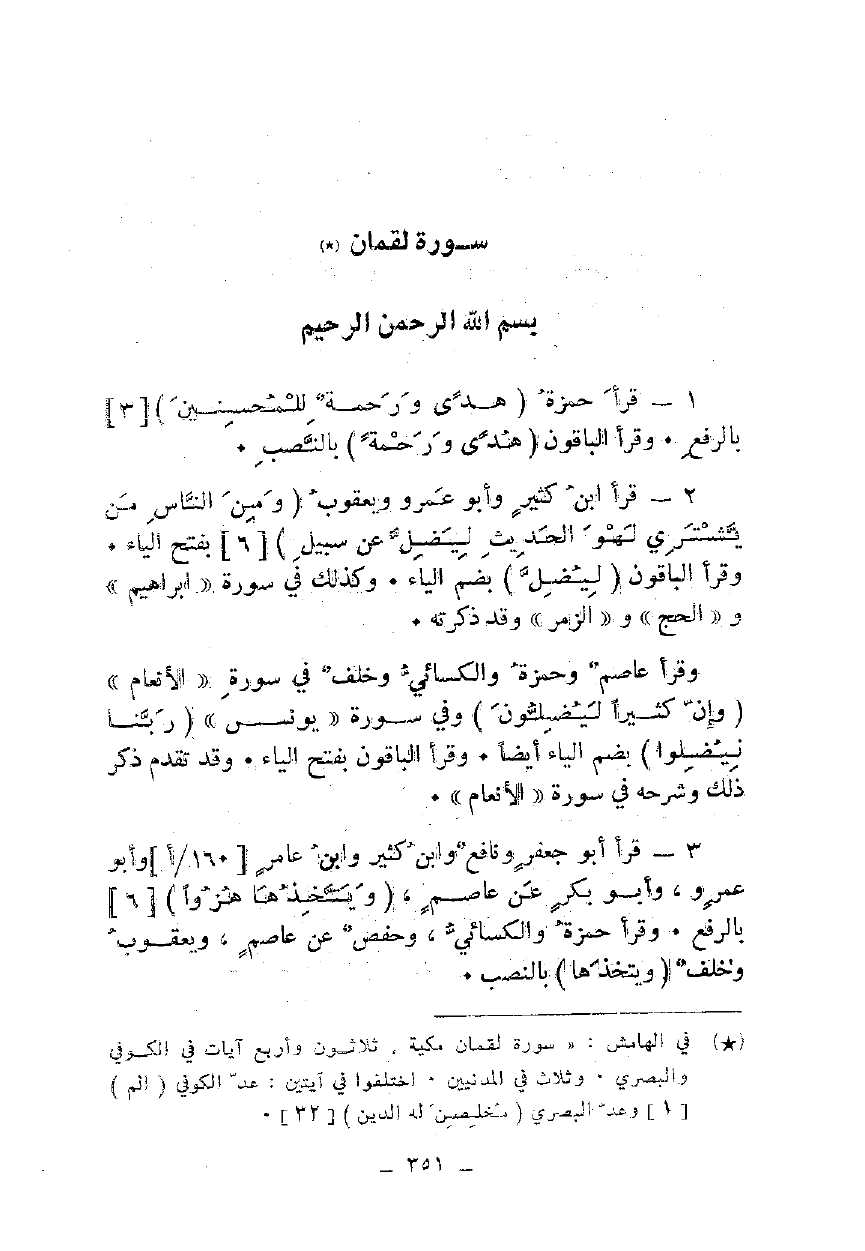 ســورة لقمان (★)
بسم الله الرحمن الرحيم
١ ــ قرأَ حمزةُ ( هــدًى وَرَحمــةٌ لِلْمُحسِنــينَ )[٣]
بالرفع ٠ وقرأ الباقون ( هُدًى وَرَحْمةً ) بالنَّصبِ ٠
٢ ــ قرأ ابنُ كثيرٍ وأبو عَمرو ويعقوبُ ( وَمِنَ النَّاسِ مَن
يَّشْتَرِي لَهْوَ الحَدِيثِ لِيَضِلَّ عن سبيلِ ) [٦] بفتح الياء ٠
وقرأ الباقون ( لِيُضِلَّ ) بضم الياء ٠ وكذلك في سورة « ابراهيم »
و « الحج » و « الزمر » وقد ذكرته ٠
وقرأ عاصمٌ وحمزةُ والكسائيُّ وخلفٌ في سورةِ « الأنعام »
( وإنّ كثــيراً لَيُضِلُّونَ ) وفي ســورة « يونــس » ( رَبَّنــا
لِيُضِلوا ) بضم الياء أيضاً ٠ وقرأ الباقون بفتح الياء ٠ وقد تقدم ذكر
ذلك وشرحه في سورة « الأنعام » ٠
٣ ــ قرأ أبو جعفرٍ ونافعٌ وابنُ كثير وابنُ عامرٍ [ ١٦٠/أ ] وأبو
عمرٍو ، وأبــو بكرٍ عَن عاصــمٍ ، ( وَيَتَّخِذُهــا هُزُواً ) [ ٦ ]
بالرفع ٠ وقرأ حمزةُ والكسائيُّ ، وحفصٌ عن عاصمٍ ، ويعقــوبُ
وخلفٌ ( ويتخذَها ) بالنصب ٠
(★) في الهامش : « سورة لقمان مكية , ثلاثــون وأربع آيات في الكــوفي
والبصري ٠ وثلاث في المدنيين ٠ اختلفوا في آيتين : عدّ الكوفي ( الم )
[ ١ ] وعدّ البصري ( مُخلِصينَ له الدين ) [ ٣٢ ] ٠
ــ ٣٥١ ــ